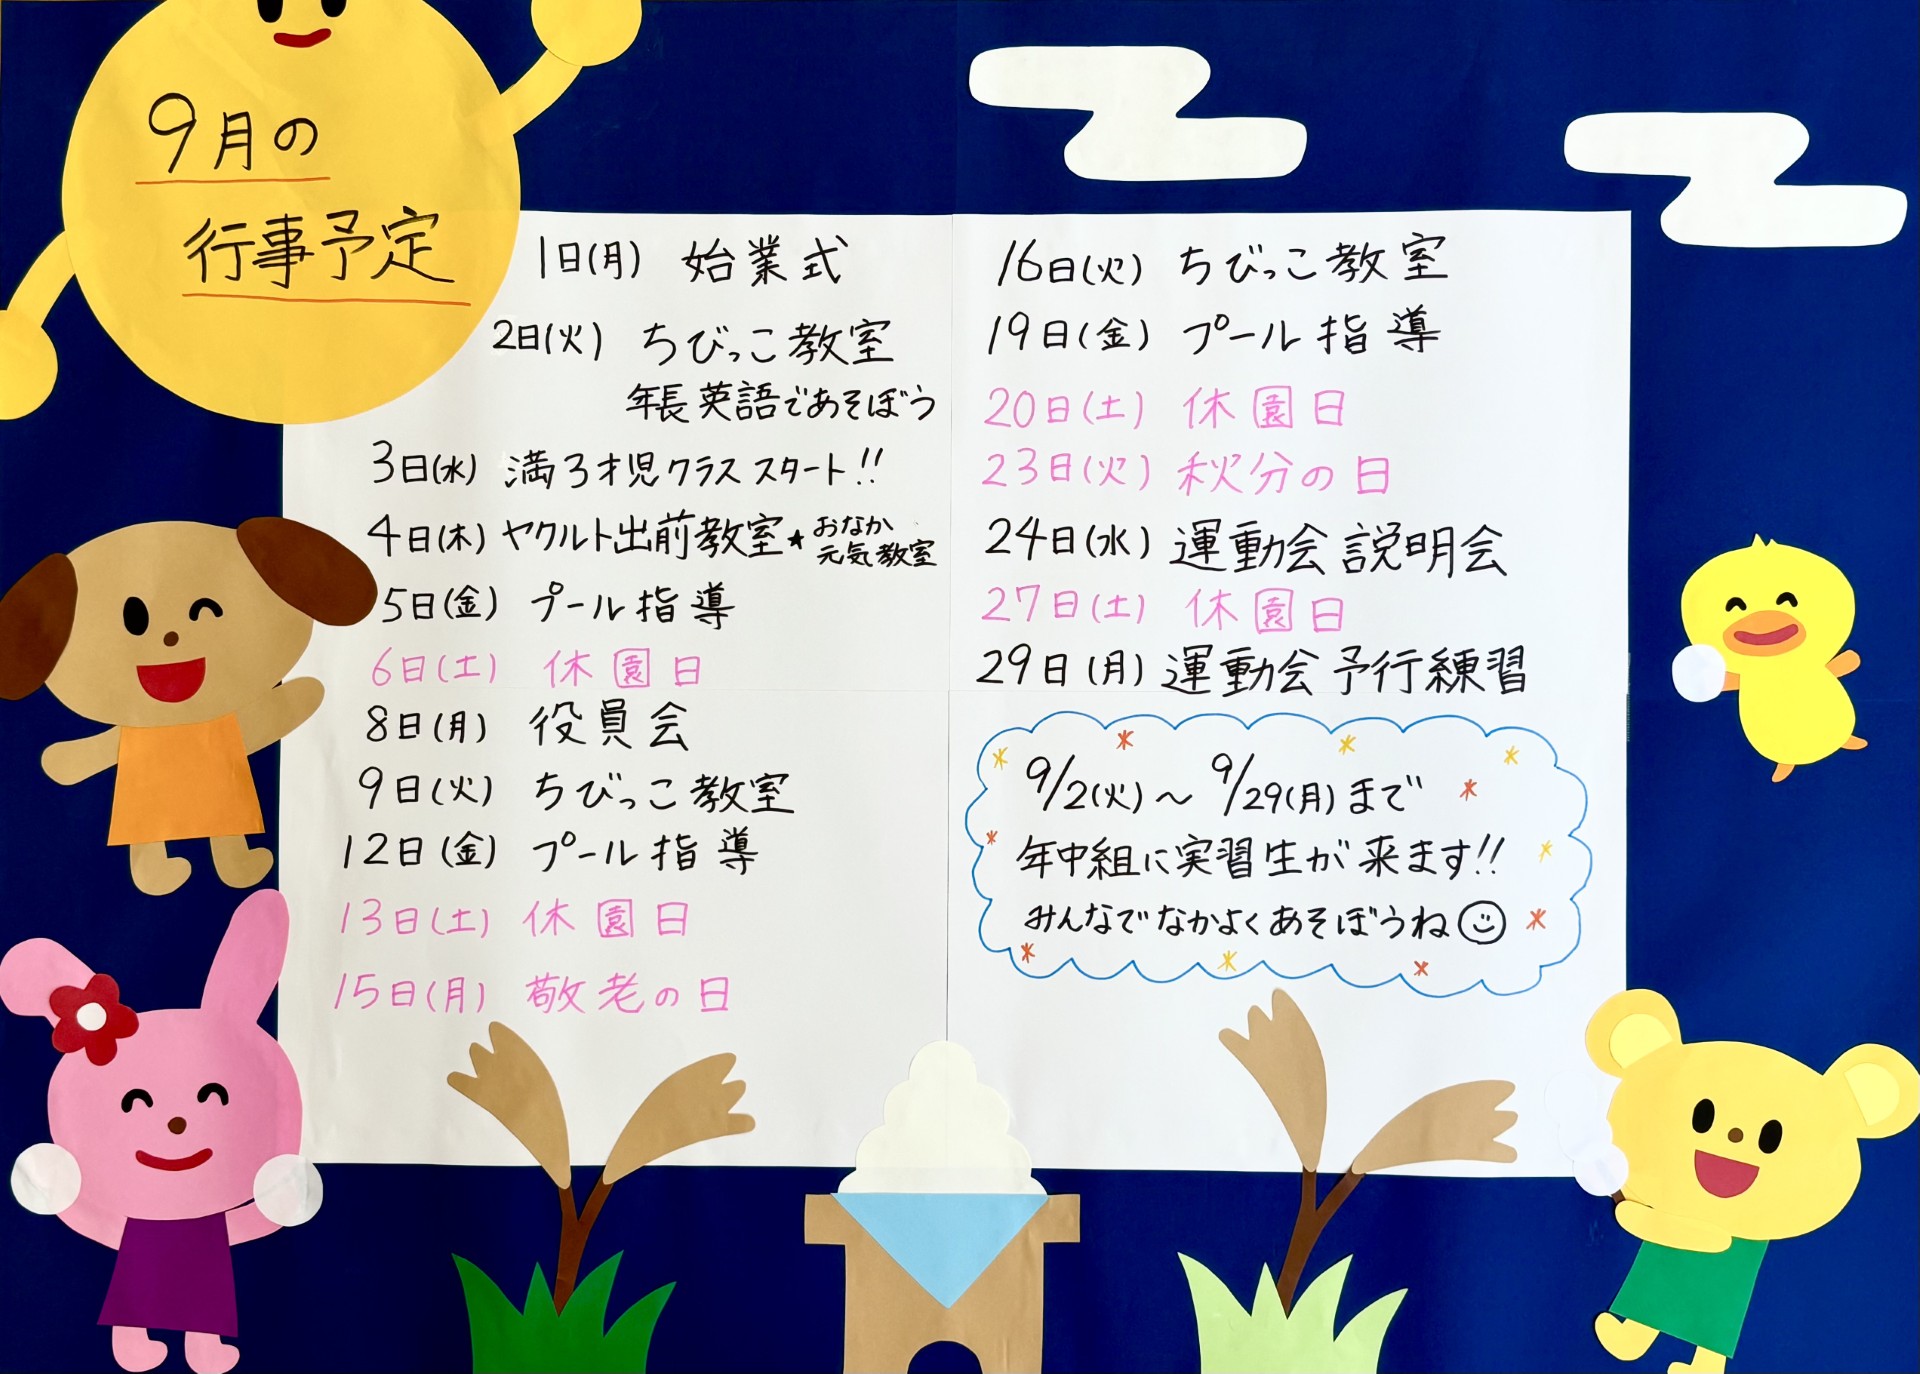 9月の
行事予定
1日(月) 始業式
2日(火) ちびっこ教室
年長英語であそぼう
3日(水) 満3才児クラス スタート!!
4日(木) ヤクルト出前教室★おなか
元気教室
5日(金) プール指導
6日(土) 休園日
8日(月) 役員会
9日(火) ちびっこ教室
12日(金) プール指導
13日(土) 休園日
15日(月) 敬老の日
16日(火) ちびっこ教室
19日(金) プール指導
20日(土) 休園日
23日(火) 秋分の日
24日(水) 運動会説明会
27日(土) 休園日
29日(月) 運動会予行練習
9/2(火)～9/29(月)まで
年中組に実習生が来ます!!
みんなでなかよくあそぼうね